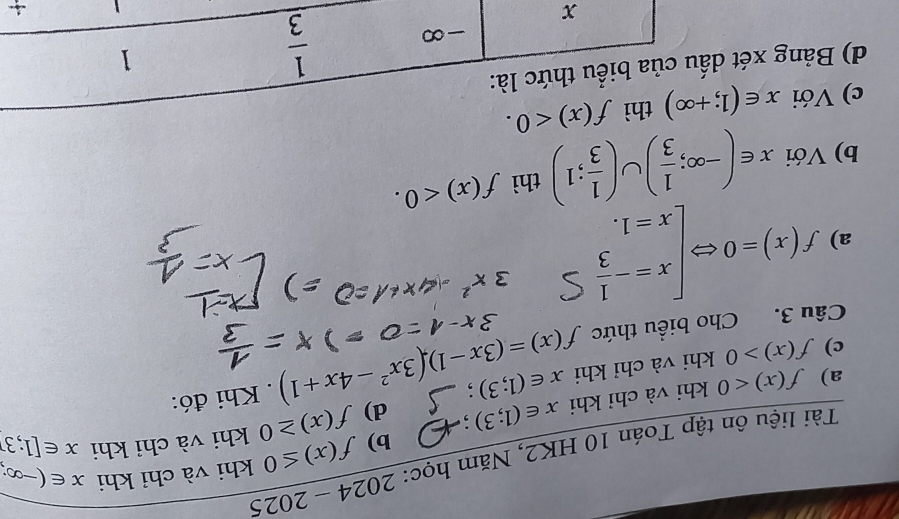 Tài liệu ôn tập Toán 10 HK2, Năm học: 2024 – 2025
a) f(x) < 0 khi và chỉ khi x ∈ (1;3); Đ b) f(x) ≤ 0 khi và chỉ khi x ∈ (−∞;
c) f(x) > 0 khi và chỉ khi x ∈ (1;3); S d) f(x) ≥ 0 khi và chỉ khi x ∈ [1;3]
Câu 3. Cho biểu thức f(x) = (3x − 1)(3x² − 4x + 1). Khi đó:
3x - 1 = 0 => x = 1/3
a) f(x) = 0 ⇔ [ x = −1/3 S 3x² - 4x + 1 = 0 => [ x = 1
x = 1. x = 1/3
b) Với x ∈ (−∞; 1/3) ∪ (1/3; 1) thì f(x) < 0.
c) Với x ∈ (1; +∞) thì f(x) < 0.
d) Bảng xét dấu của biểu thức là:
x −∞ 1/3 1 +